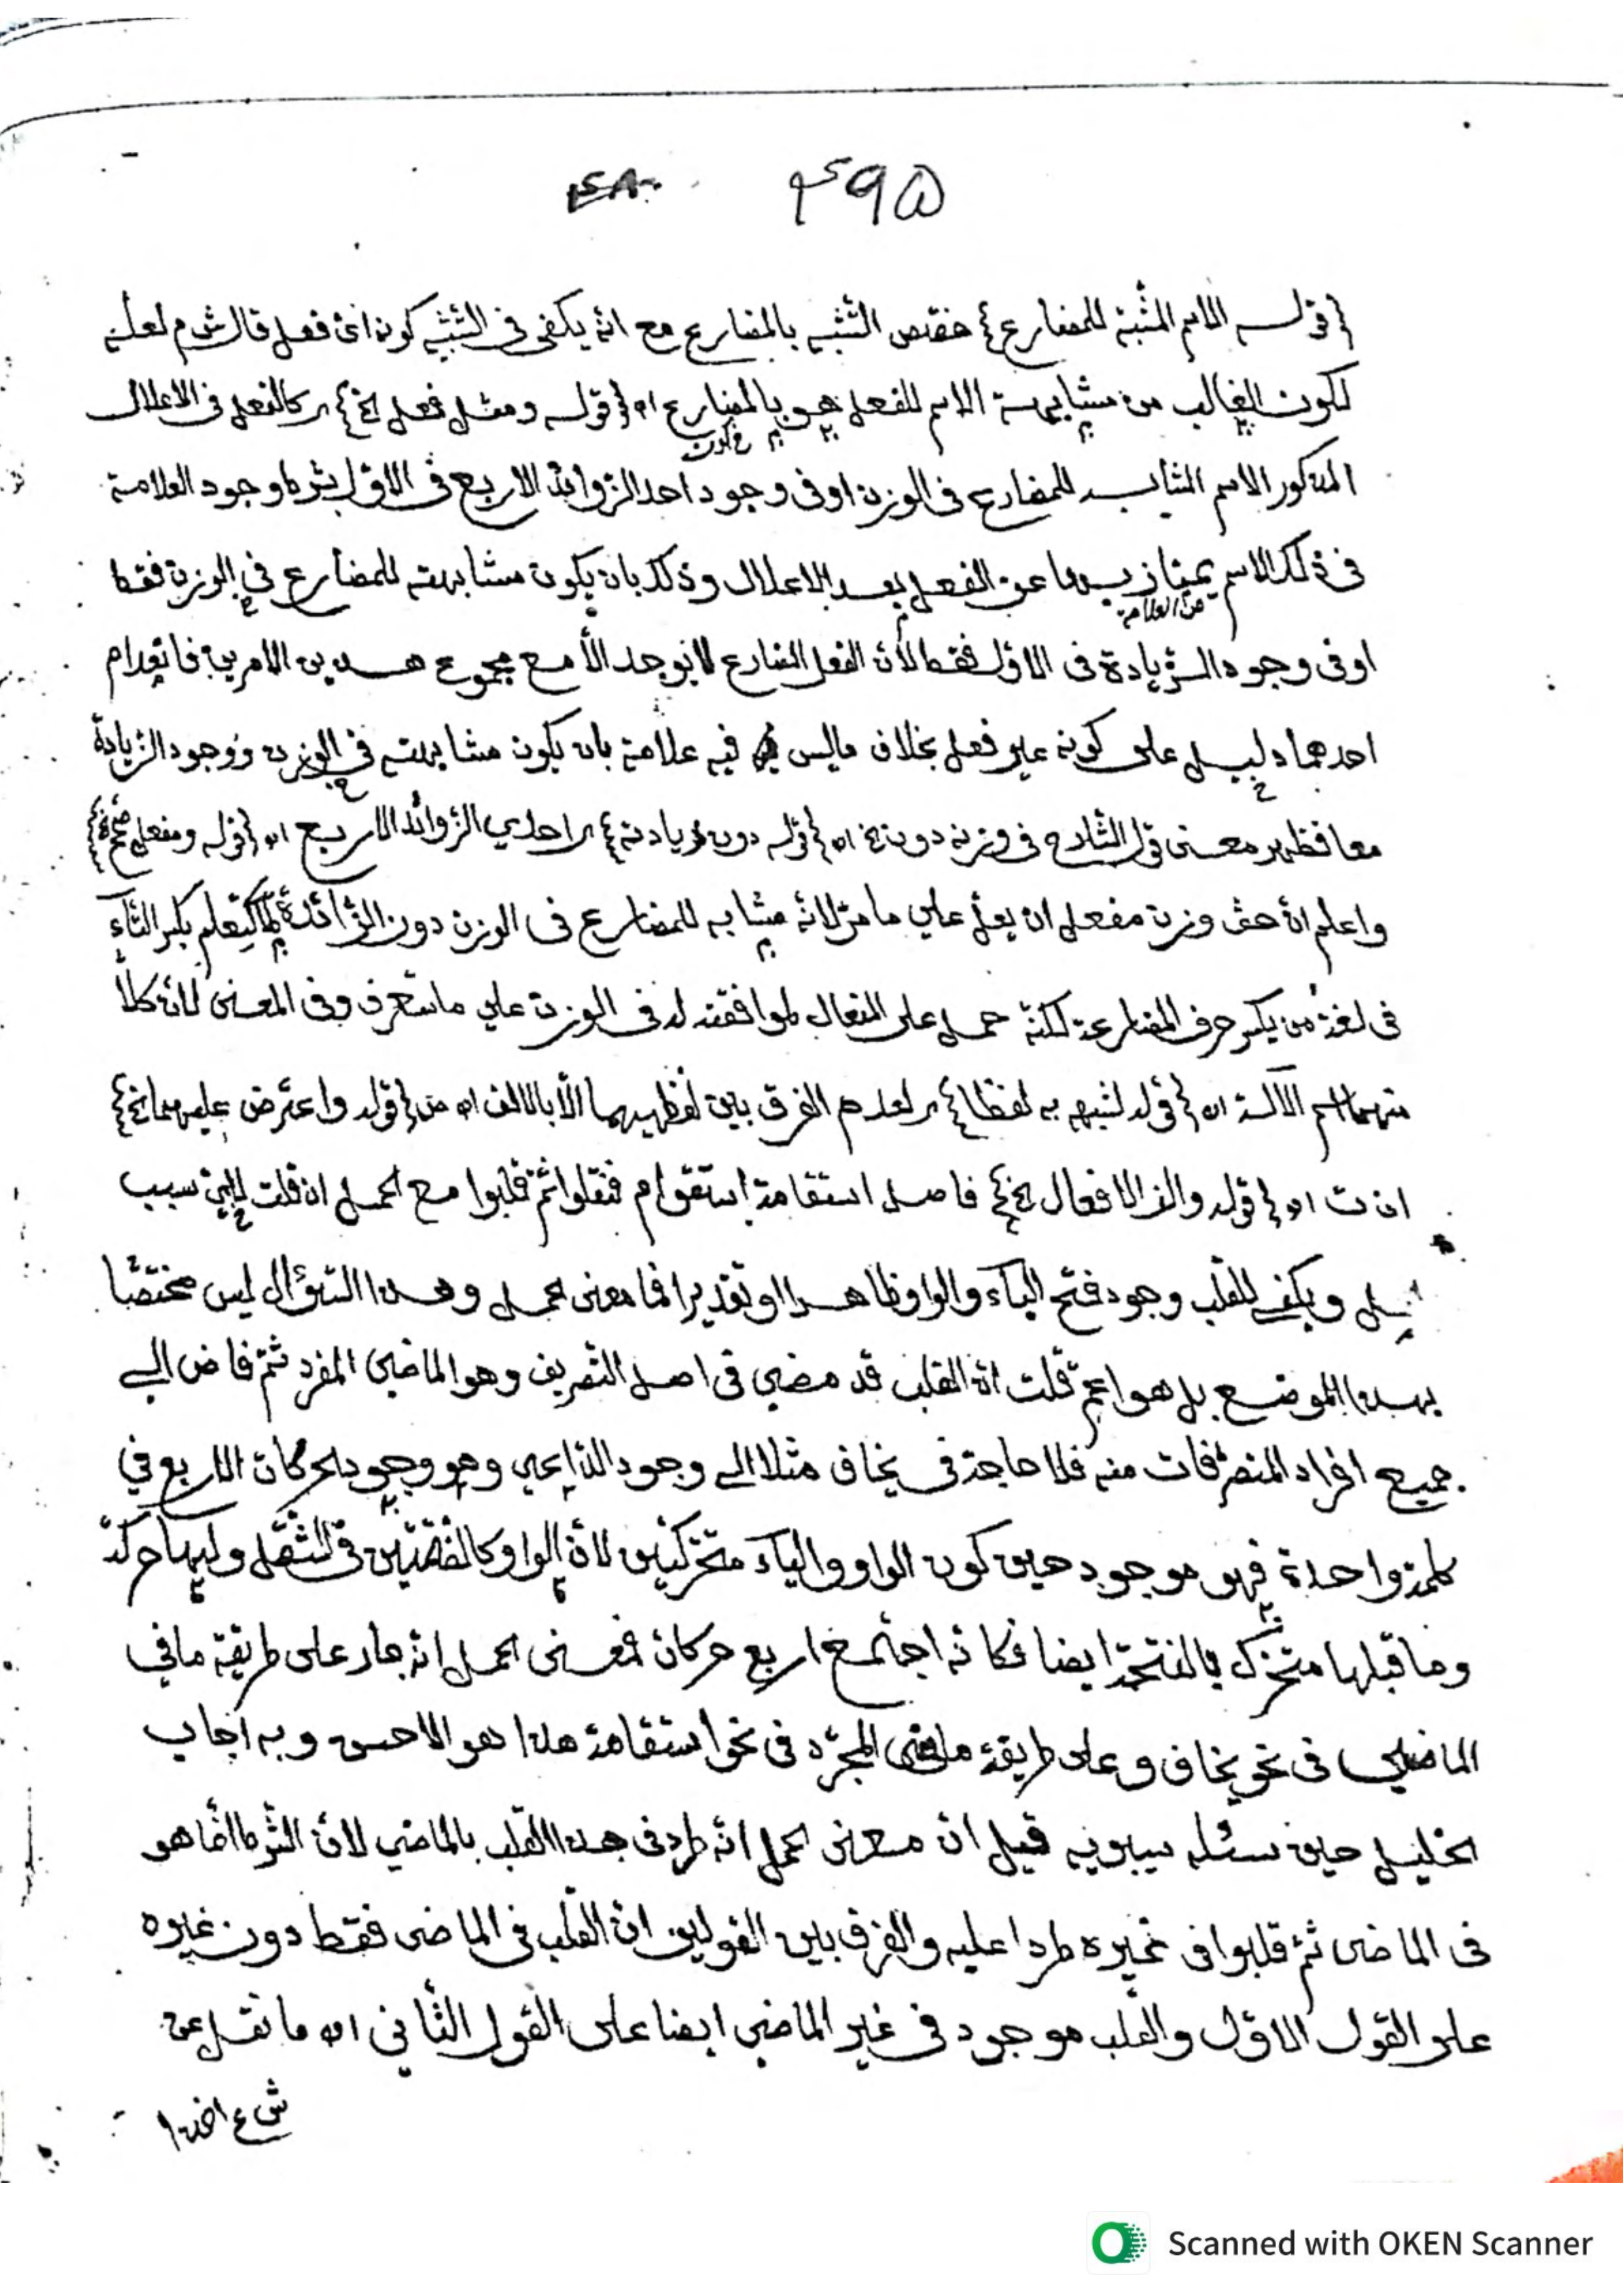 ٤٩٥
{قوله الاسم المشبه للمضارع} خصّص التشبه بالمضارع مع انه يكفى فى التشبه كونه اىّ فعل قال ش م لعله
لكون الغالب من مشابهة الاسم للفعل هو بالمضارع اه {قوله ومثل فعل الخ} كالفعل فى الاعلال
فى كون
المذكور الاسم المشابه للمضارع فى الوزن او فى وجود احد الزوائد الاربع فى الاول بشرط وجود العلامة
فى ذلك الاسم يمتاز بها عن الفعل بعد الاعلال وذلك بان يكون مشابهته للمضارع فى الوزن فقط
من العلامة
او فى وجود الزيادة فى الاول فقط لأن الفعل المضارع لا يوجد الاّ مع مجموع هذين الامرين فانعدام
احدهما دليل على كونه غير فعل بخلاف ما ليس فيه علامة بان يكون مشابهته فى الوزن ووجود الزيادة
معا فظهر معنى قول الشارح فى وزنه دون الخ اه {قوله دون زيادته} احدي الزوائد الاربع اه {قوله ومفعل صحح}
واعلم انّ حق وزن مفعل ان يعلّ علي ما مرّ لانه مشابه للمضارع فى الوزن دون الزائدة كتعلم بكسر التاء
فى لغة من يكسر حرف المضارعة لكنّه حمل على المفعال لموافقته له فى الوزن علي ما ستعرف وفى المعنى لانّ كلاّ
منهما اسم الآلة اه {قوله لشبهه به لفظا} لعدم الفرق بين لفظيهما الاّ بالالف اه من {قوله واعترض عليهما الخ}
ان ت اه {قوله والف الافعال الخ} فاصل استقامة استقوام فنقلوا ثم قلبوا مع الحمل ان قلت سبب
ويكفى للقلب وجود فتح الياء والواو ظاهرا او تقديرا فما معنى الحمل وهذا السؤال ليس مختصّا
بهذا الموضع بل هو اعم قلت انّ القلب قد مضي فى اصل التصريف وهو الماضي المفرد ثمّ فاض الي
جميع افراد المتصرفات منه فلا حاجة فى يخاف مثلا الي وجود الداعي وهو وجود الحركات الاربع في
كلمة واحدة فهو موجود حين كون الواو والياء متحركتين لانّ الواو كالضمّتين فى الثقل وليها حركة
وما قبلها متحرّك بالفتحة ايضا فكانه اجتمع اربع حركات فمعنى الحمل انه جار على طريقة ما في
الماضي فى نحو يخاف وعلى طريقة ما في المجرّد فى نحو استقامة هذا هو الاحسن وبه اجاب
الخليل حين سئله سيبويه قيل ان معنى الحمل انه طرد فى هذا القلب بالماضي لانّ الشرط انما هو
فى الماضى ثمّ قلبوا فى غيره طردا عليه والفرق بين القولين انّ القلب فى الماضى فقط دون غيره
على القول الاوّل والقلب موجود فى غير الماضي ايضا على القول الثّاني اه ما نقل عن
ش ع
Scanned with OKEN Scanner